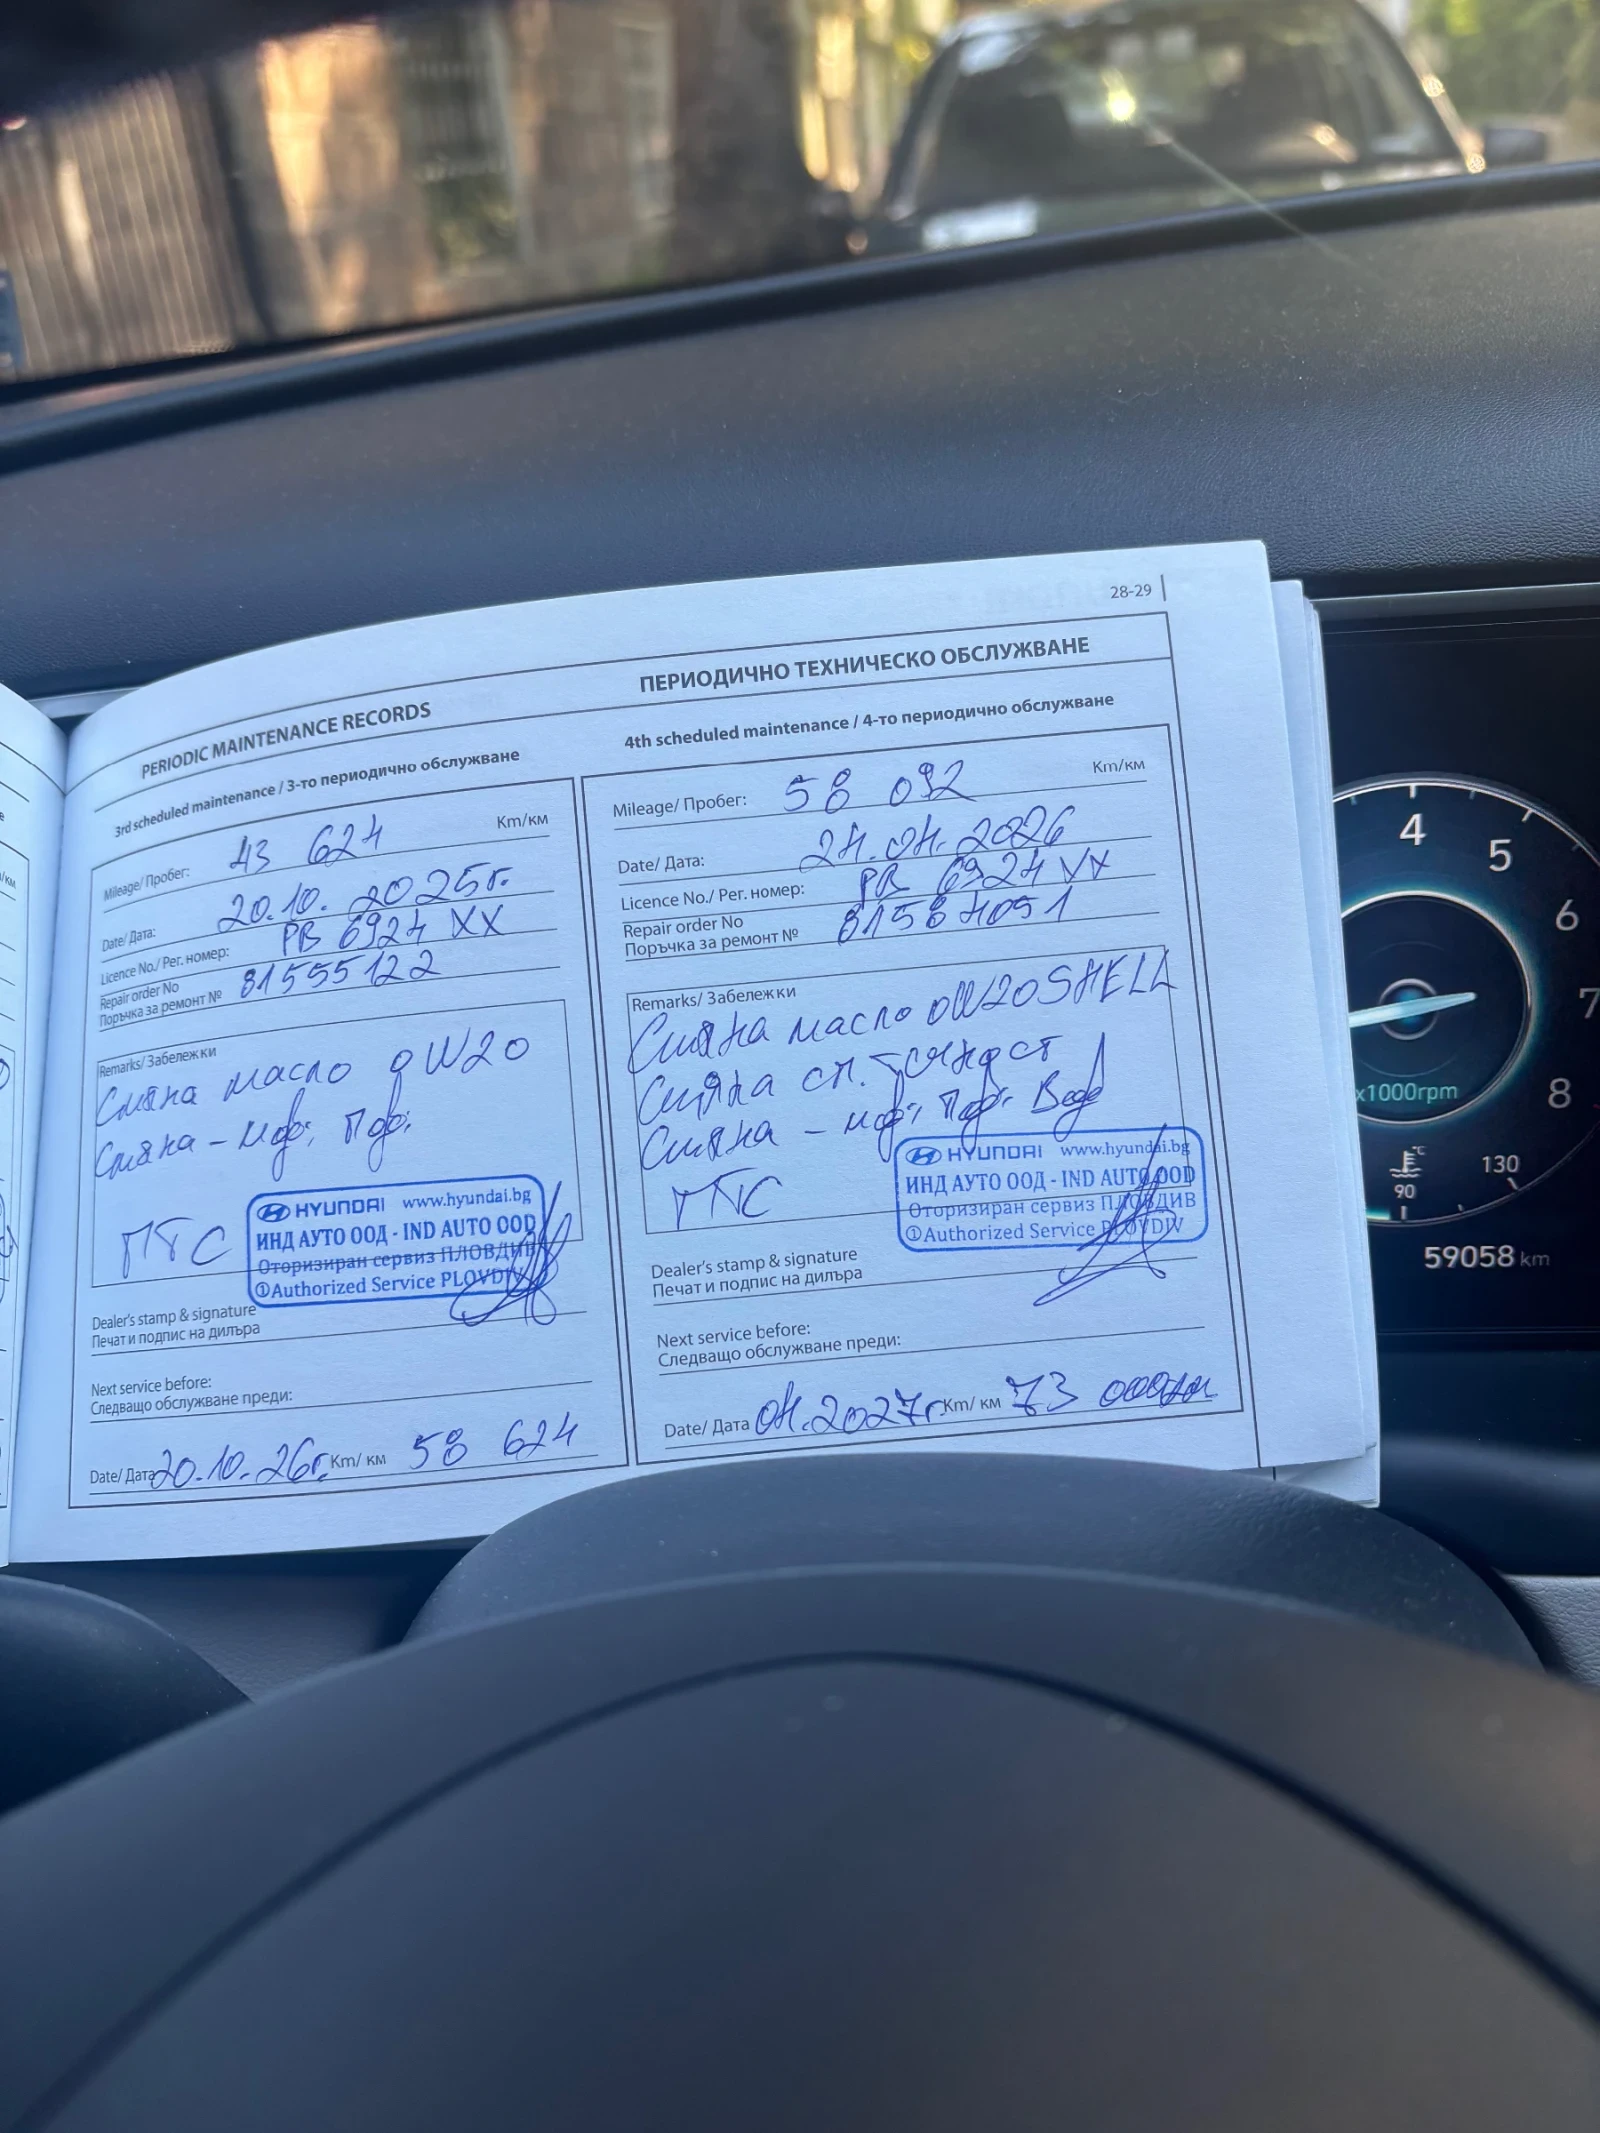 28-29
PERIODIC MAINTENANCE RECORDS
ПЕРИОДИЧНО ТЕХНИЧЕСКО ОБСЛУЖВАНЕ
3rd scheduled maintenance / 3-то периодично обслужване
Mileage/ Пробег: 43 624 Km/км
Date/ Дата: 20.10.2025г.
Licence No./ Рег. номер: РВ 6924 XX
Repair order No
Поръчка за ремонт № 81555122
Remarks/ Забележки
Смяна масло 0W20
Смяна - мф; Пф;
ПТС
HYUNDAI www.hyundai.bg
ИНД АУТО ООД - IND AUTO OOD
Оторизиран сервиз ПЛОВДИВ
①Authorized Service PLOVDIV
Dealer's stamp & signature
Печат и подпис на дилъра
Next service before:
Следващо обслужване преди:
Date/ Дата 20.10.26г. Km/ км 58 624
4th scheduled maintenance / 4-то периодично обслужване
Mileage/ Пробег: 58 092 Km/км
Date/ Дата: 24.04.2026
Licence No./ Рег. номер: РВ 6924 XX
Repair order No
Поръчка за ремонт № 81584051
Remarks/ Забележки
Смяна масло 0W20 SHELL
Смяна сп. течност
Смяна - мф; Пф;
ПТС
HYUNDAI www.hyundai.bg
ИНД АУТО ООД - IND AUTO OOD
Оторизиран сервиз ПЛОВДИВ
①Authorized Service PLOVDIV
Dealer's stamp & signature
Печат и подпис на дилъра
Next service before:
Следващо обслужване преди:
Date/ Дата 04.2027г Km/ км 73 000км
4
5
6
7
8
x1000rpm
°C
90
130
59058 km